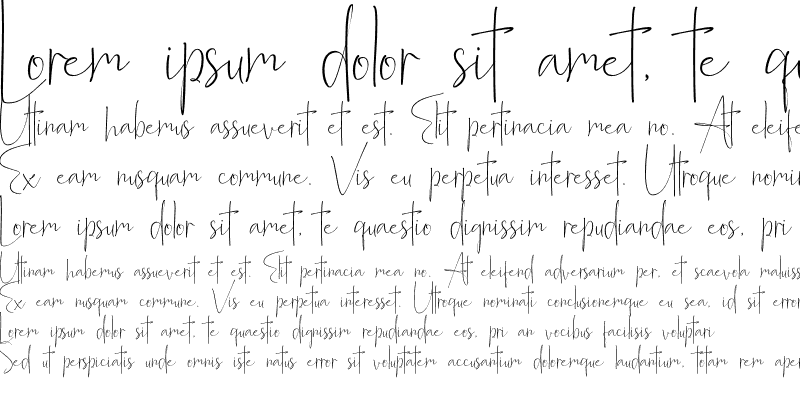 Lorem ipsum dolor sit amet, te
Utinam habemus assueverit et est. Elit pertinacia mea no. At
Ex eam nusquam commune. Vis eu perpetua interesset. Utroque
Lorem ipsum dolor sit amet, te quaestio dignissim repudiandae eos, pri
Utinam habemus assueverit et est. Elit pertinacia mea no. At eleifend adversarium per, et scaevola
Ex eam nusquam commune. Vis eu perpetua interesset. Utroque nominati conclusionemque eu sea, id sit
Lorem ipsum dolor sit amet, te quaestio dignissim repudiandae eos, pri an vocibus facilisis voluptari
Sed ut perspiciatis unde omnis iste natus error sit voluptatem accusantium doloremque laudantium, totam rem